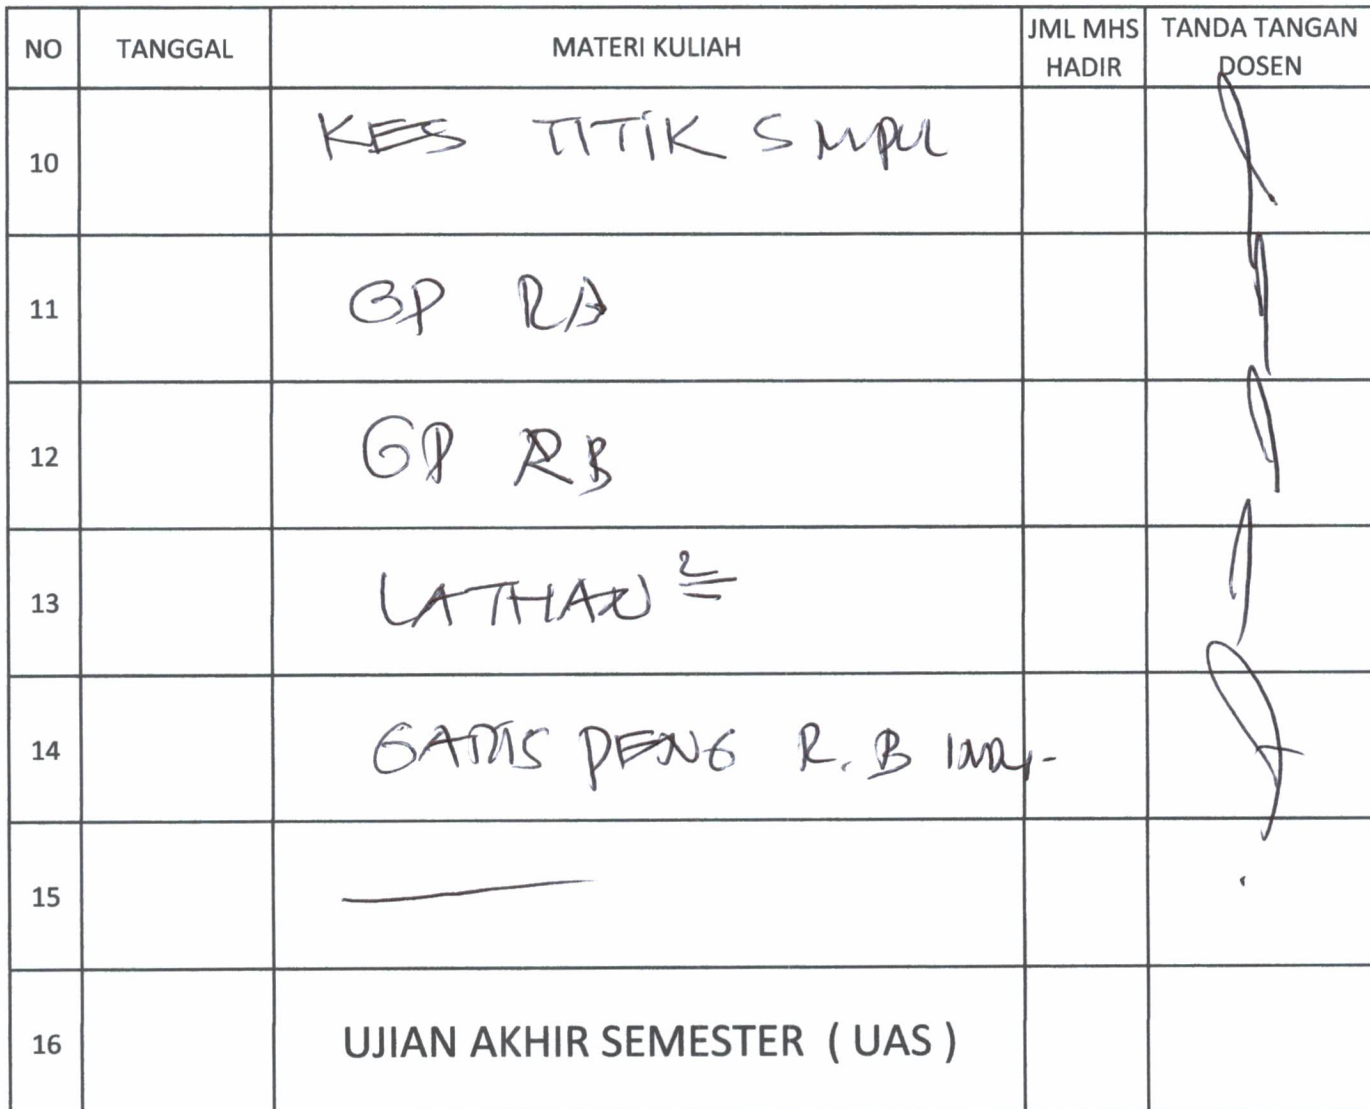 NO TANGGAL MATERI KULIAH JML MHS HADIR TANDA TANGAN DOSEN
10 KES TITIK SMPUL
11 GP RA
12 GP RB
13 LATHAN 2
14 GARIS PENG R. B
15
16 UJIAN AKHIR SEMESTER ( UAS )